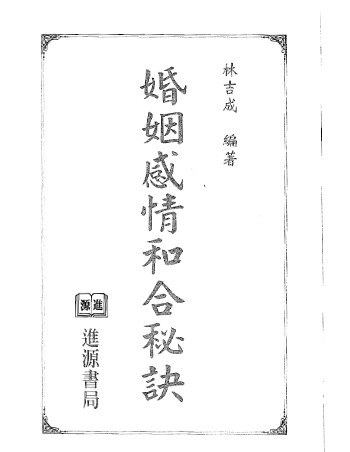 林吉成 編著
婚姻感情和合秘訣
進源
進源書局